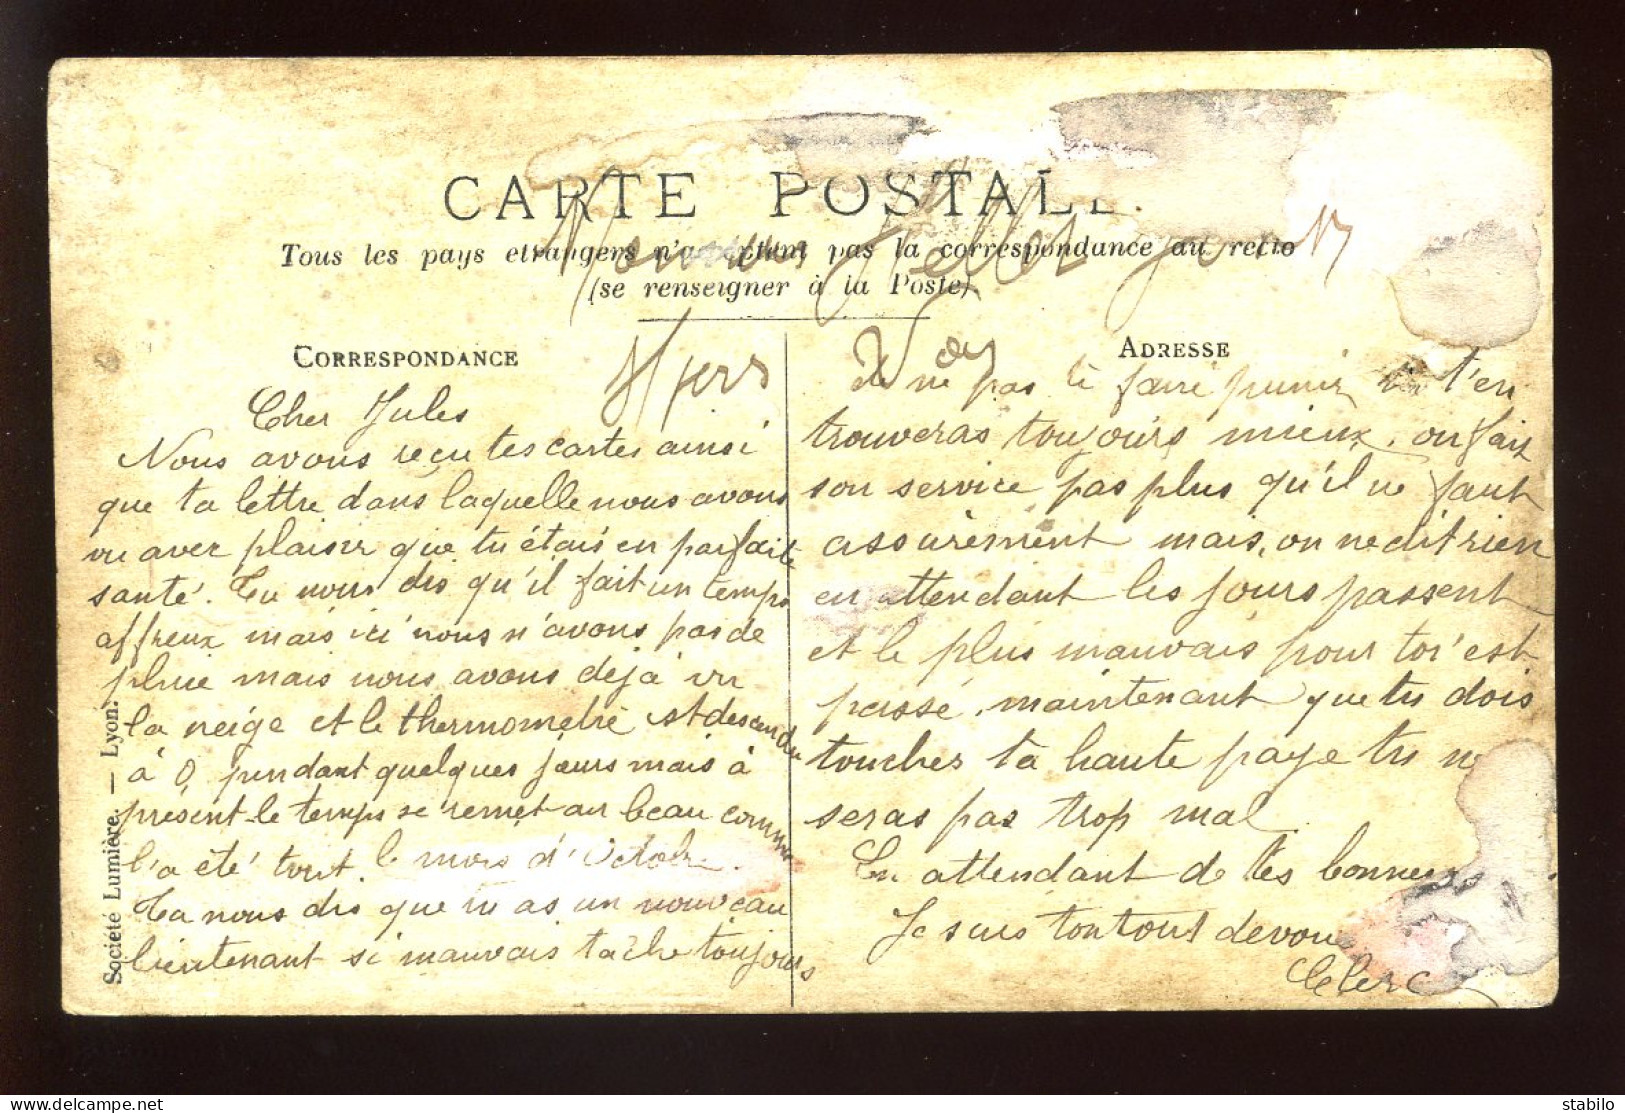 CARTE POSTAL
Tous les pays etrangers n'acceptent pas la correspondance au recto
(se renseigner à la Poste).
CORRESPONDANCE
ADRESSE
Hyers
Cher Jules
Nous avons reçu tes cartes ainsi
que ta lettre dans laquelle nous avons
vu avec plaisir que tu étais en parfaite
santé. Tu nous dis qu'il fait un temps
affreux mais ici nous n'avons pas de
pluie mais nous avons déjà vu
la neige et le thermometre est descendu
à 0 pendant quelques jours mais à
présent le temps se remet au beau comme
l'a été tout le mois d'Octobre.
Ta nous dis que tu as un nouveau
lieutenant si mauvais tache toujours
de ne pas te faire punir t'en
trouveras toujours mieux. on fait
son service pas plus qu'il ne faut
assurément mais, on ne dit rien
en attendant les jours passent
et le plus mauvais pour toi est
passé, maintenant que tu dois
toucher ta haute paye tu n
seras pas trop mal.
En attendant de tes bonnes
Je suis ton tout devou
Clerc
Société Lumière. — Lyon.
stabilo